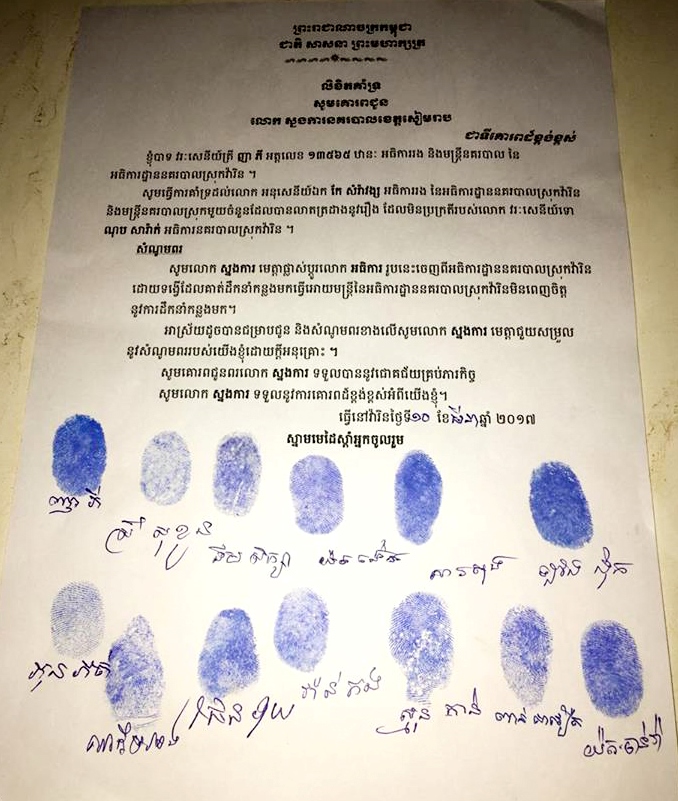 ព្រះរាជាណាចក្រកម្ពុជា
ជាតិ សាសនា ព្រះមហាក្សត្រ
លិខិតគាំទ្រ
សូមគោរពជូន
លោក ស្នងការនគរបាលខេត្តសៀមរាប
ជាទីគោរពដ៏ខ្ពង់ខ្ពស់
ខ្ញុំបាទ វរៈសេនីយ៍ត្រី ញា ភី អត្តលេខ ១៣៥៦៥ ឋានៈ អធិការរង និងមន្ត្រីនគរបាល នៃ
អធិការដ្ឋាននគរបាលស្រុកវ៉ារិន ។
សូមធ្វើការគាំទ្រដល់លោក អនុសេនីយ៍ឯក កែ សំរ៉ាវង្ស អធិការរង នៃអធិការដ្ឋាននគរបាលស្រុកវ៉ារិន
និងមន្ត្រីនគរបាលស្រុកមួយចំនួនដែលបានលាតត្រដាងនូវរឿង ដែលមិនប្រក្រតីរបស់លោក វរៈសេនីយ៍ទោ
ណុប សារ៉ាក់ អធិការនគរបាលស្រុកវ៉ារិន ។
សំណូមពរ
សូមលោក ស្នងការ មេត្តាផ្លាស់ប្តូរលោក អធិការ រូបនេះចេញពីអធិការដ្ឋាននគរបាលស្រុកវ៉ារិន
ដោយទង្វើដែលគាត់ដឹកនាំកន្លងមកធ្វើអោយមន្ត្រីនៃអធិការដ្ឋាននគរបាលស្រុកវ៉ារិនមិនពេញចិត្ត
នូវការដឹកនាំកន្លងមក។
អាស្រ័យដូចបានជម្រាបជូន និងសំណូមពរខាងលើសូមលោក ស្នងការ មេត្តាជួយសម្រួល
នូវសំណូមពររបស់យើងខ្ញុំដោយក្តីអនុគ្រោះ ។
សូមគោរពជូនពរលោក ស្នងការ ទទួលបាននូវជោគជ័យគ្រប់ភារកិច្ច
សូមលោក ស្នងការ ទទួលនូវការគោរពដ៏ខ្ពង់ខ្ពស់អំពីយើងខ្ញុំ។
ធ្វើនៅវ៉ារិនថ្ងៃទី១០ ខែមីនាឆ្នាំ ២០១៧
ស្នាមមេដៃស្តាំអ្នកចូលរួម
ញា ភី